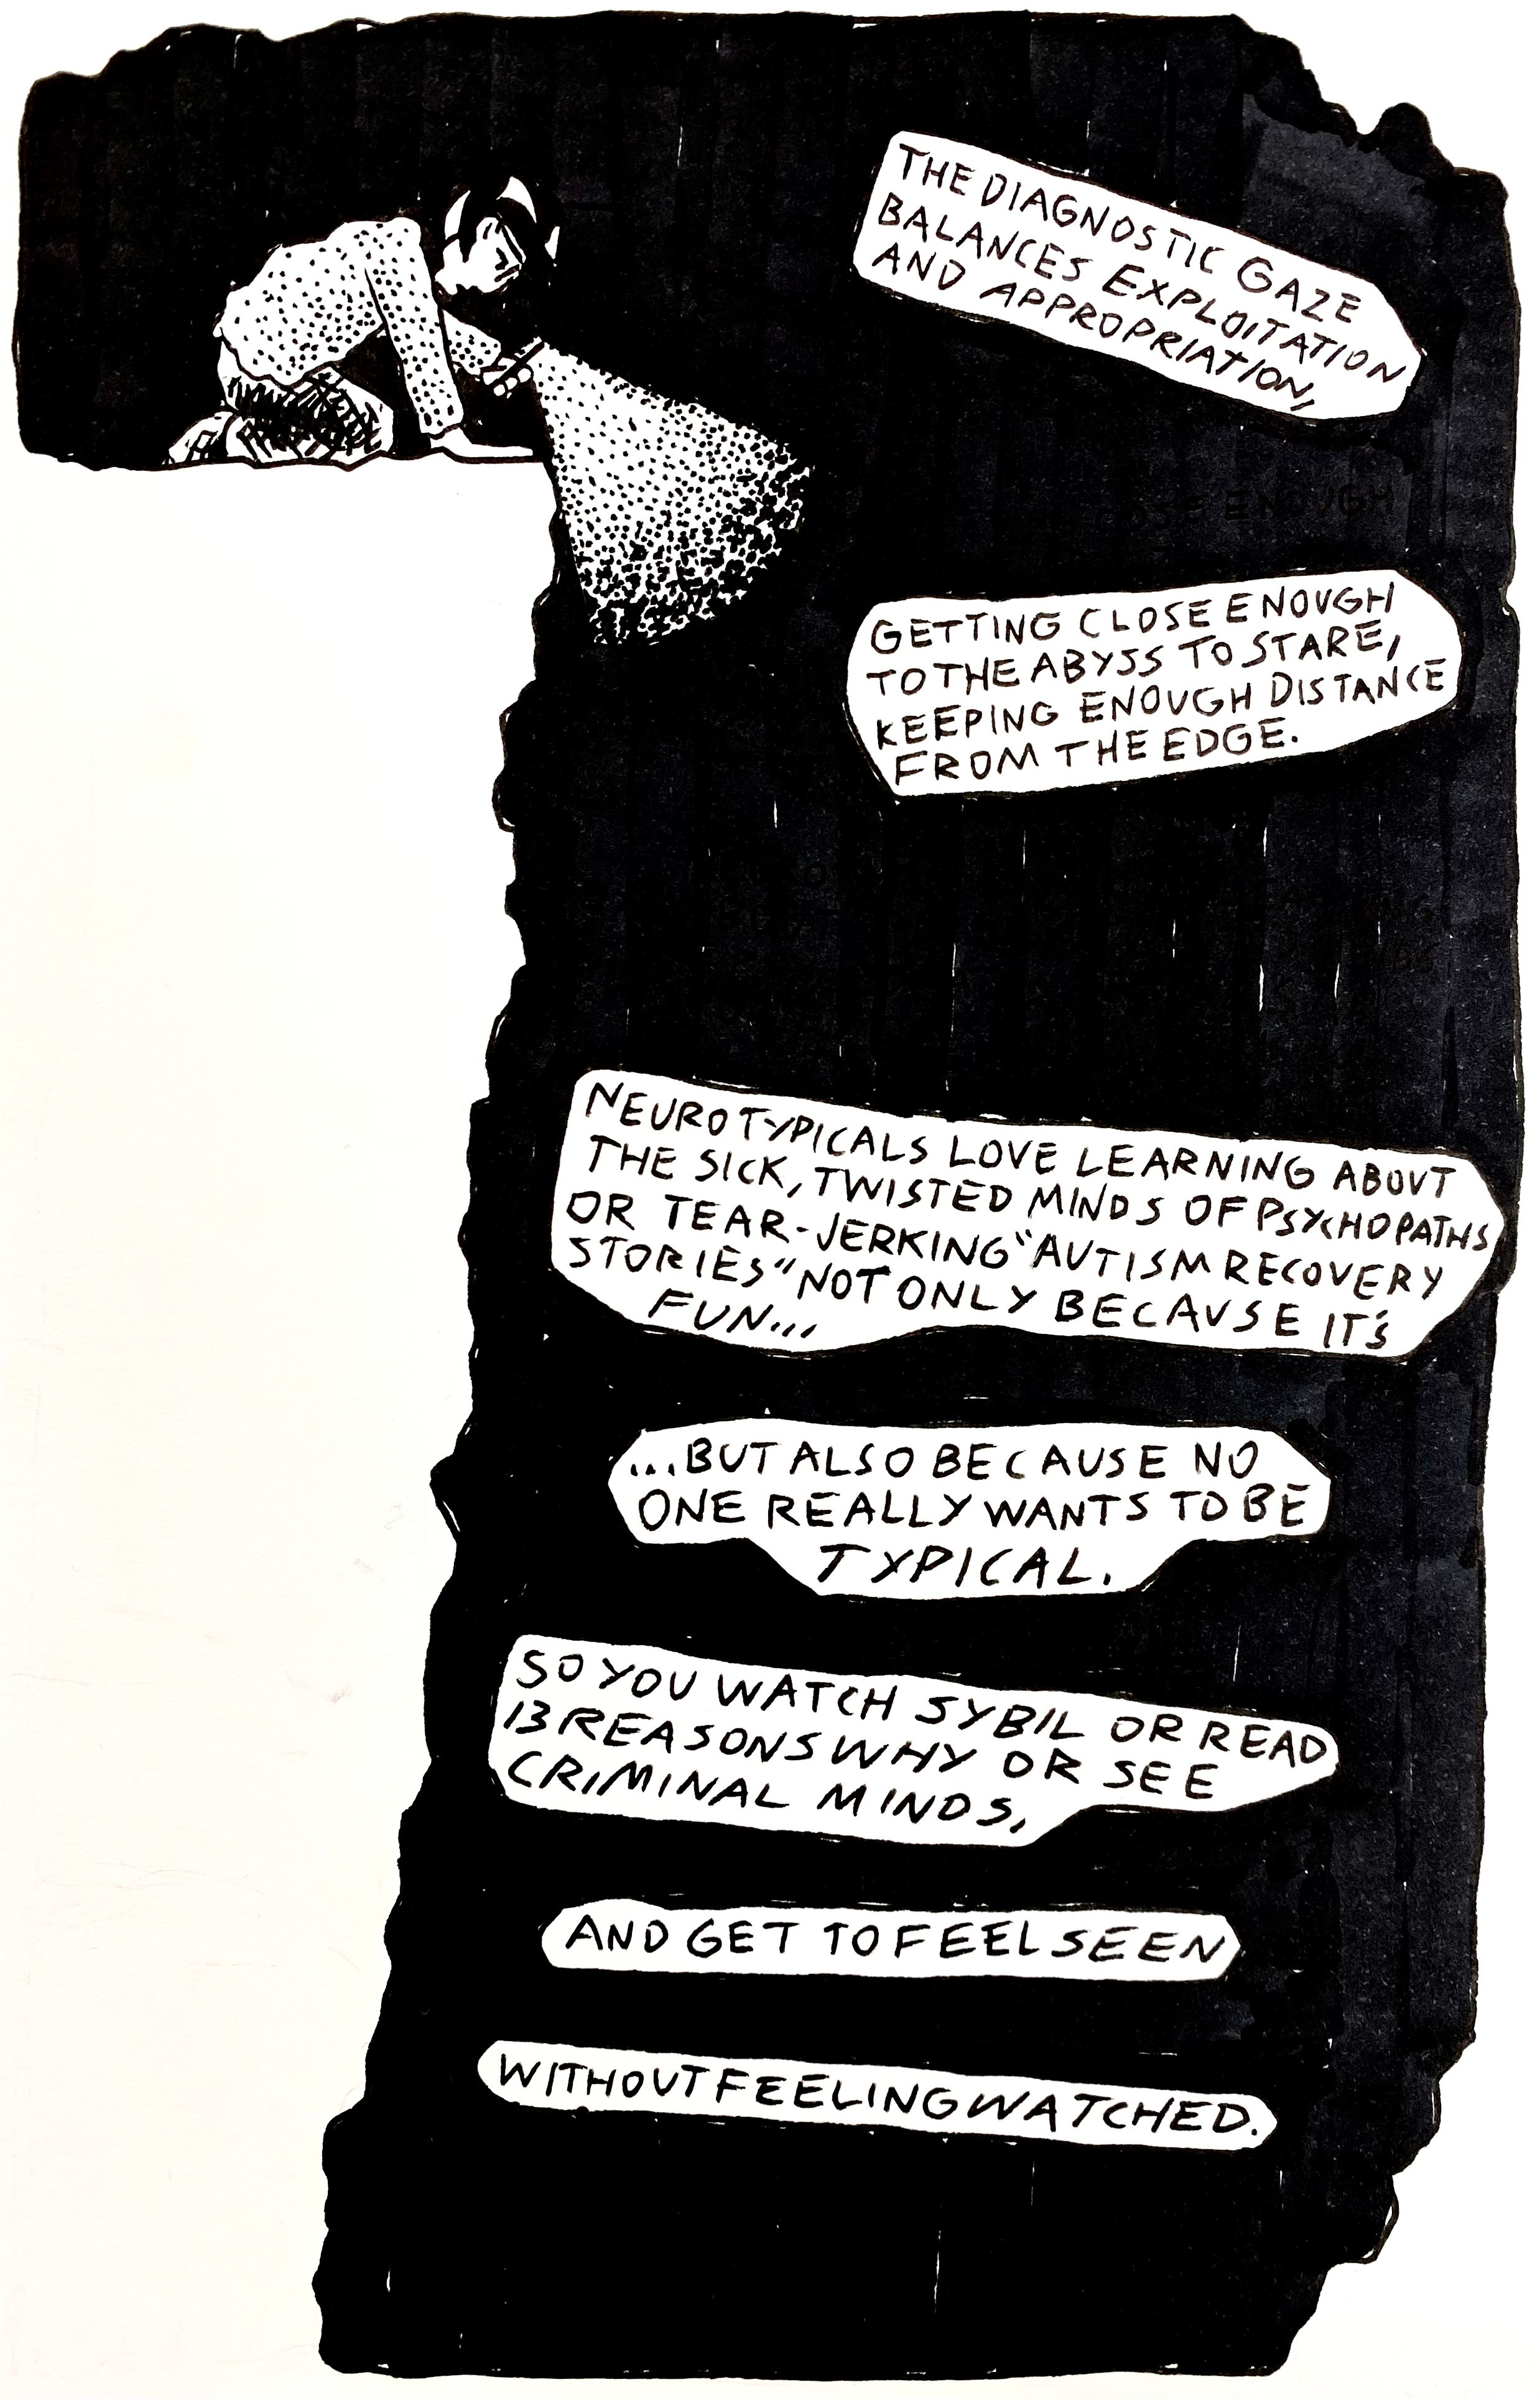 THE DIAGNOSTIC GAZE
BALANCES EXPLOITATION
AND APPROPRIATION,
GETTING CLOSE ENOUGH
TO THE ABYSS TO STARE,
KEEPING ENOUGH DISTANCE
FROM THE EDGE.
NEUROTYPICALS LOVE LEARNING ABOUT
THE SICK, TWISTED MINDS OF PSYCHOPATHS
OR TEAR-JERKING "AUTISM RECOVERY
STORIES" NOT ONLY BECAUSE IT'S
FUN...
...BUT ALSO BECAUSE NO
ONE REALLY WANTS TO BE
TYPICAL.
SO YOU WATCH SYBIL OR READ
13 REASONS WHY OR SEE
CRIMINAL MINDS,
AND GET TO FEEL SEEN
WITHOUT FEELING WATCHED.